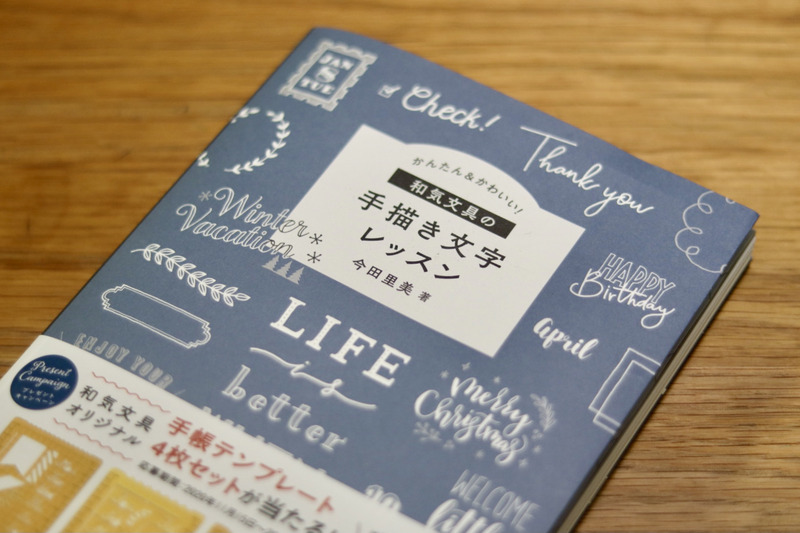 JAN
8
TUE
Check!
Thank you
かんたん&かわいい!
和気文具の
手描き文字
レッスン
今田里美 著
Winter
Vacation
HAPPY
Birthday
april
LIFE
is
better
Merry
Christmas
ENJOY YOUR
WELCOME
little
Present
Campaign
プレゼント
キャンペーン
和気文具
オリジナル
手帳テンプレート
4枚セットが当たる